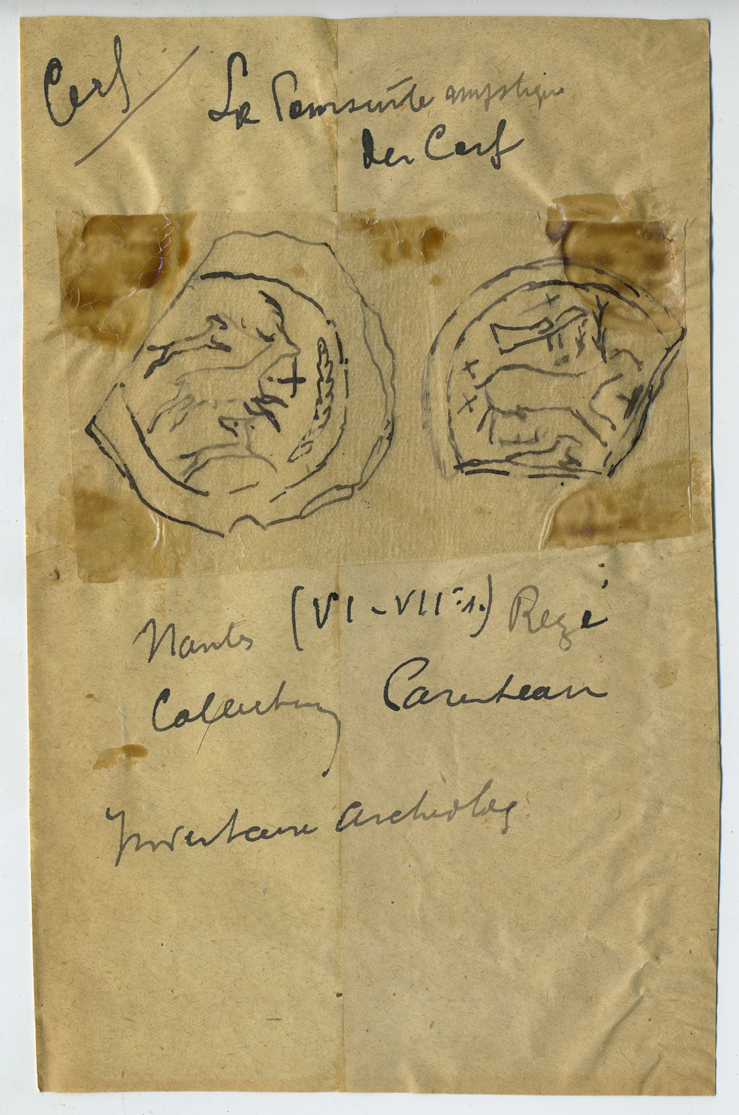 Cerf
La Poursuite mystique
du Cerf
Nantes (VI-VIIe s.) Rezé
Collection Parenteau
Inventaire archeolog.